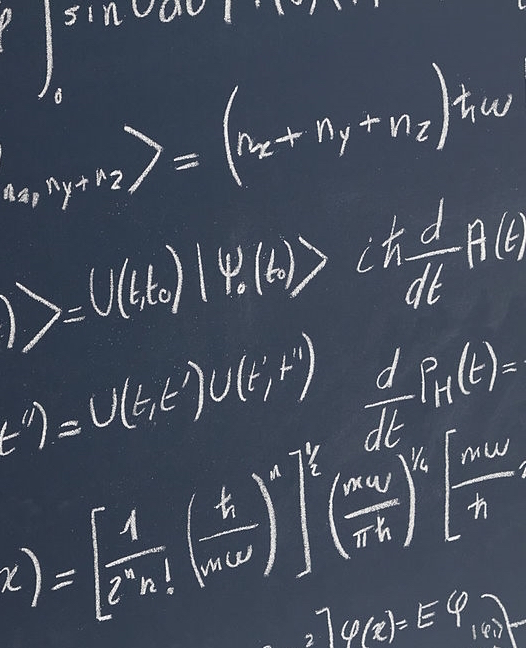 ∫₀ sin θ dθ
n_x, n_y + n_z ⟩ = (n_x + n_y + n_z) ħω
) ⟩ = U(t,t₀) | Ψ₀(t₀) ⟩   iħ d/dt A(t)
t'') = U(t,t') U(t',t'')   d/dt P_H(t) =
x) = [ 1/(2ⁿ n!) (ħ/(mω))ⁿ ]^{1/2} (mω/(πħ))^{1/4} [ mω/ħ
2 ] φ(x) = E φ